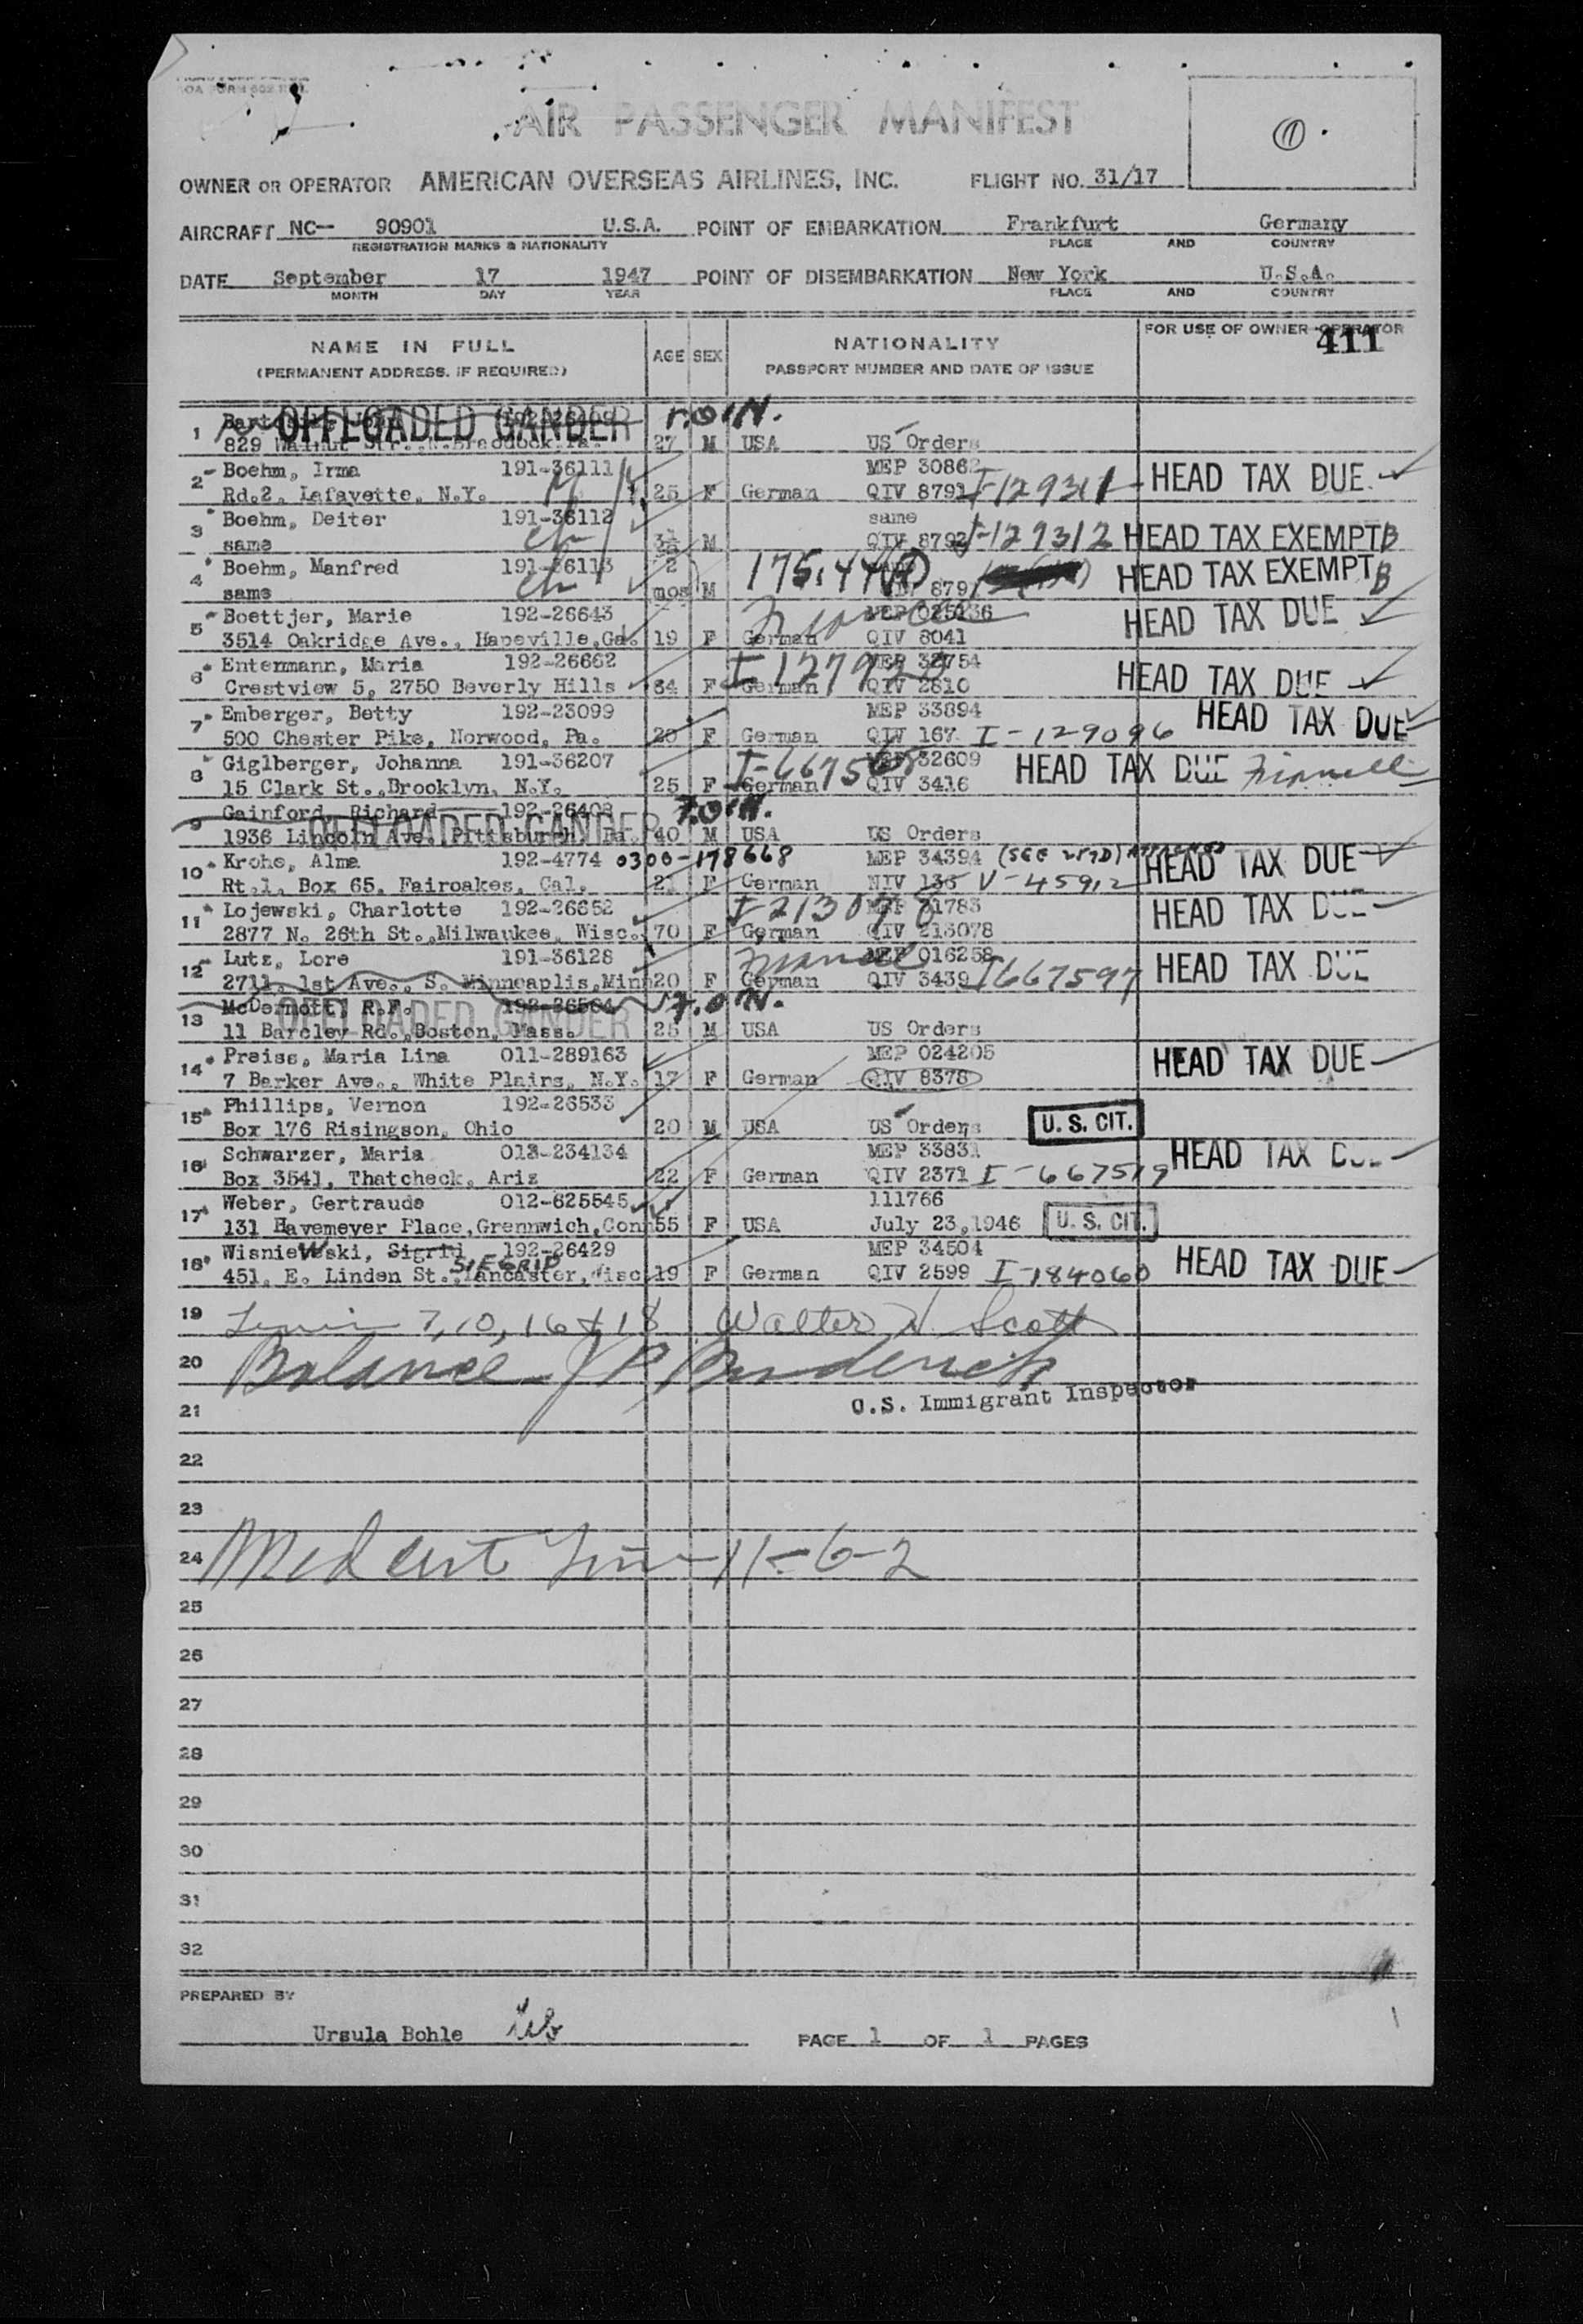 AIR PASSENGER MANIFEST
OWNER OR OPERATOR AMERICAN OVERSEAS AIRLINES, INC. FLIGHT NO. 31/17
AIRCRAFT NC-- 90901 U.S.A. POINT OF EMBARKATION Frankfurt Germany
REGISTRATION MARKS & NATIONALITY PLACE AND COUNTRY
DATE September 17 1947 POINT OF DISEMBARKATION New York U.S.A.
MONTH DAY YEAR PLACE AND COUNTRY
NAME IN FULL AGE SEX NATIONALITY FOR USE OF OWNER OPERATOR
411
(PERMANENT ADDRESS, IF REQUIRED) PASSPORT NUMBER AND DATE OF ISSUE
OFFLOADED GANDER
1 829 Walnut Str. Braddock Pa. 27 M USA US Orders
2 Boehm, Irma 191-36111 MEP 30862 HEAD TAX DUE
Rd.2, Lafayette, N.Y. 25 F German QIV 8791 I-129311
3 Boehm, Deiter 191-36112 same
same M QIV 8792 I-129312 HEAD TAX EXEMPT B
4 Boehm, Manfred 191-36113 2 HEAD TAX EXEMPT B
same mos M
5 Boettjer, Marie 192-26643 HEAD TAX DUE
3514 Oakridge Ave., Hapeville, Ga. 19 F German QIV 8041
6 Entenmann, Maria 192-26662 MEP 32754
Crestview 5, 2750 Beverly Hills 34 F German QIV 2610 HEAD TAX DUE
7 Emberger, Betty 192-23099 MEP 33894 HEAD TAX DUE
500 Chester Pike, Norwood, Pa. 20 F German QIV 167 I-129096
8 Giglberger, Johanna 191-36207 MEP 32609 HEAD TAX DUE
15 Clark St., Brooklyn, N.Y. 25 F German QIV 3416
9 Gainford, Richard 192-26408
OFFLOADED GANDER
1936 Lincoln Ave. Pittsburgh Pa. 40 M USA US Orders
10 Krohe, Alma 192-4774 0300-178668 MEP 34394 HEAD TAX DUE
Rt.1, Box 65, Fairoakes, Cal. 21 F German NIV 135 V-45912
11 Lojewski, Charlotte 192-26652 I-213078 HEAD TAX DUE
2877 N. 26th St., Milwaukee, Wisc. 70 F German QIV 213078
12 Lutz, Lore 191-36128 MEP 016258 HEAD TAX DUE
2711, 1st Ave., S. Minneaplis, Minn 20 F German QIV 3439 I667597
13 McDermott, R.F. 192-26564
OFFLOADED GANDER
11 Barcley Rd., Boston, Mass. 25 M USA US Orders
14 Preiss, Maria Lina 011-289163 MEP 024205 HEAD TAX DUE
7 Barker Ave., White Plains, N.Y. 17 F German QIV 8378
15 Phillips, Vernon 192-26533 U. S. CIT.
Box 176 Risingson, Ohio 20 M USA US Orders
16 Schwarzer, Maria 013-234134 MEP 33831 HEAD TAX DUE
Box 3541, Thatcheck, Ariz 22 F German QIV 2371 I-667519
17 Weber, Gertraude 012-625545 111766
131 Havemeyer Place, Grennwich, Conn 55 F USA July 23, 1946 U. S. CIT.
18 Wisniewski, Sigrid 192-26429 MEP 34504 HEAD TAX DUE
SIEGRID
451, E. Linden St., Lancaster, Wisc 19 F German QIV 2599 I-184060
19 7, 10, 16 & 18 Walter N. Scott
20 Balance - J P Broderick
21 U.S. Immigrant Inspector
22
23
24 Med cert 11-6-2
25
26
27
28
29
30
31
32
PREPARED BY
Ursula Bohle PAGE 1 OF 1 PAGES